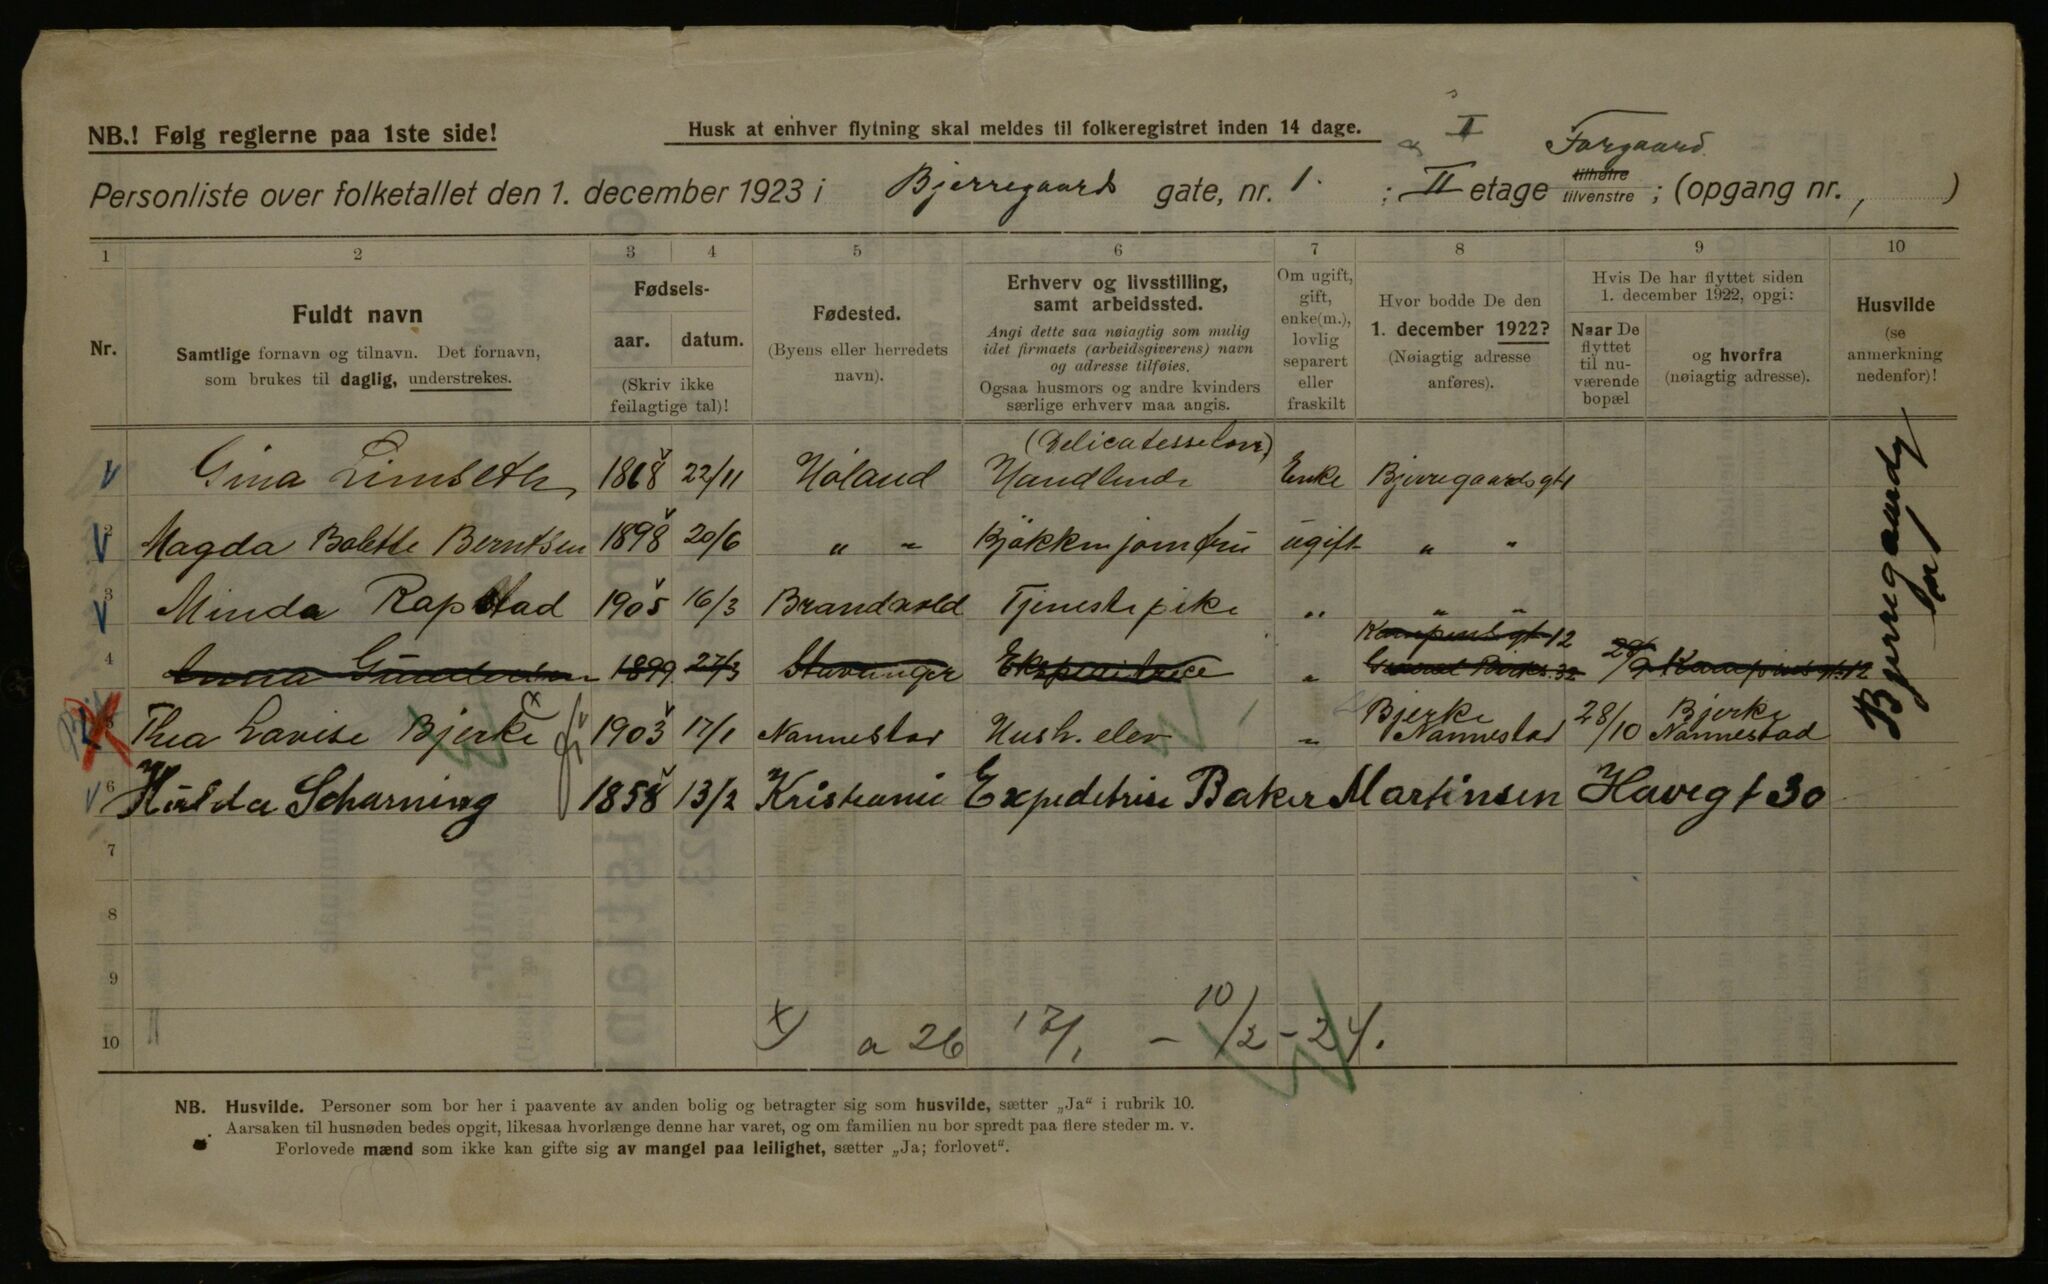 NB.! Følg reglerne paa 1ste side!
Husk at enhver flytning skal meldes til folkeregistret inden 14 dage.
I Forgaard.
Personliste over folketallet den 1. december 1923 i Bjerregaards gate, nr. 1. ; II etage tilhøire tilvenstre ; (opgang nr. , )
1 2 3 4 5 6 7 8 9 10
Nr.
Fuldt navn
Samtlige fornavn og tilnavn. Det fornavn,
som brukes til daglig, understrekes.
Fødsels-
aar. datum.
(Skriv ikke
feilagtige tal)!
Fødested.
(Byens eller herredets
navn).
Erhverv og livsstilling,
samt arbeidssted.
Angi dette saa nøiagtig som mulig
idet firmaets (arbeidsgiverens) navn
og adresse tilføies.
Ogsaa husmors og andre kvinders
særlige erhverv maa angis.
Om ugift,
gift,
enke(m.),
lovlig
separert
eller
fraskilt
Hvor bodde De den
1. december 1922?
(Nøiagtig adresse
anføres).
Hvis De har flyttet siden
1. december 1922, opgi:
Naar De
flyttet
til nu-
værende
bopæl
og hvorfra
(nøiagtig adresse).
Husvilde
(se
anmerkning
nedenfor)!
Gina Limseth 1868 22/11 Høland Handlende Enke Bjerregaardsgt 1
2 Magda Bolette Berntsen 1898 20/6 „ „ Kjøkkenjomfru ugift „ „
3 Minda Rapstad 1905 16/3 Brandvold Tjenestepike „ „ „
Kampensgt 12
4 Anna Gundersen 1899 27/3 Stavanger Ekspeditrice „ 29/9 Kampensgt. 12
5 Thea Lovise Bjerke x 1903 17/1 Nannestad Hush. elev „ Bjerke Nannestad 28/10 Bjerke Nannestad
6 Hulda Scharning 1858 13/2 Kristiania Expeditrise Baker Martinsen Havegt 30
7
8
9
10
x) a 26 17/1 – 10/2 – 24.
NB. Husvilde. Personer som bor her i paavente av anden bolig og betragter sig som husvilde, sætter „Ja“ i rubrik 10.
Aarsaken til husnøden bedes opgit, likesaa hvorlænge denne har varet, og om familien nu bor spredt paa flere steder m. v.
Forlovede mænd som ikke kan gifte sig av mangel paa leilighet, sætter „Ja; forlovet“.